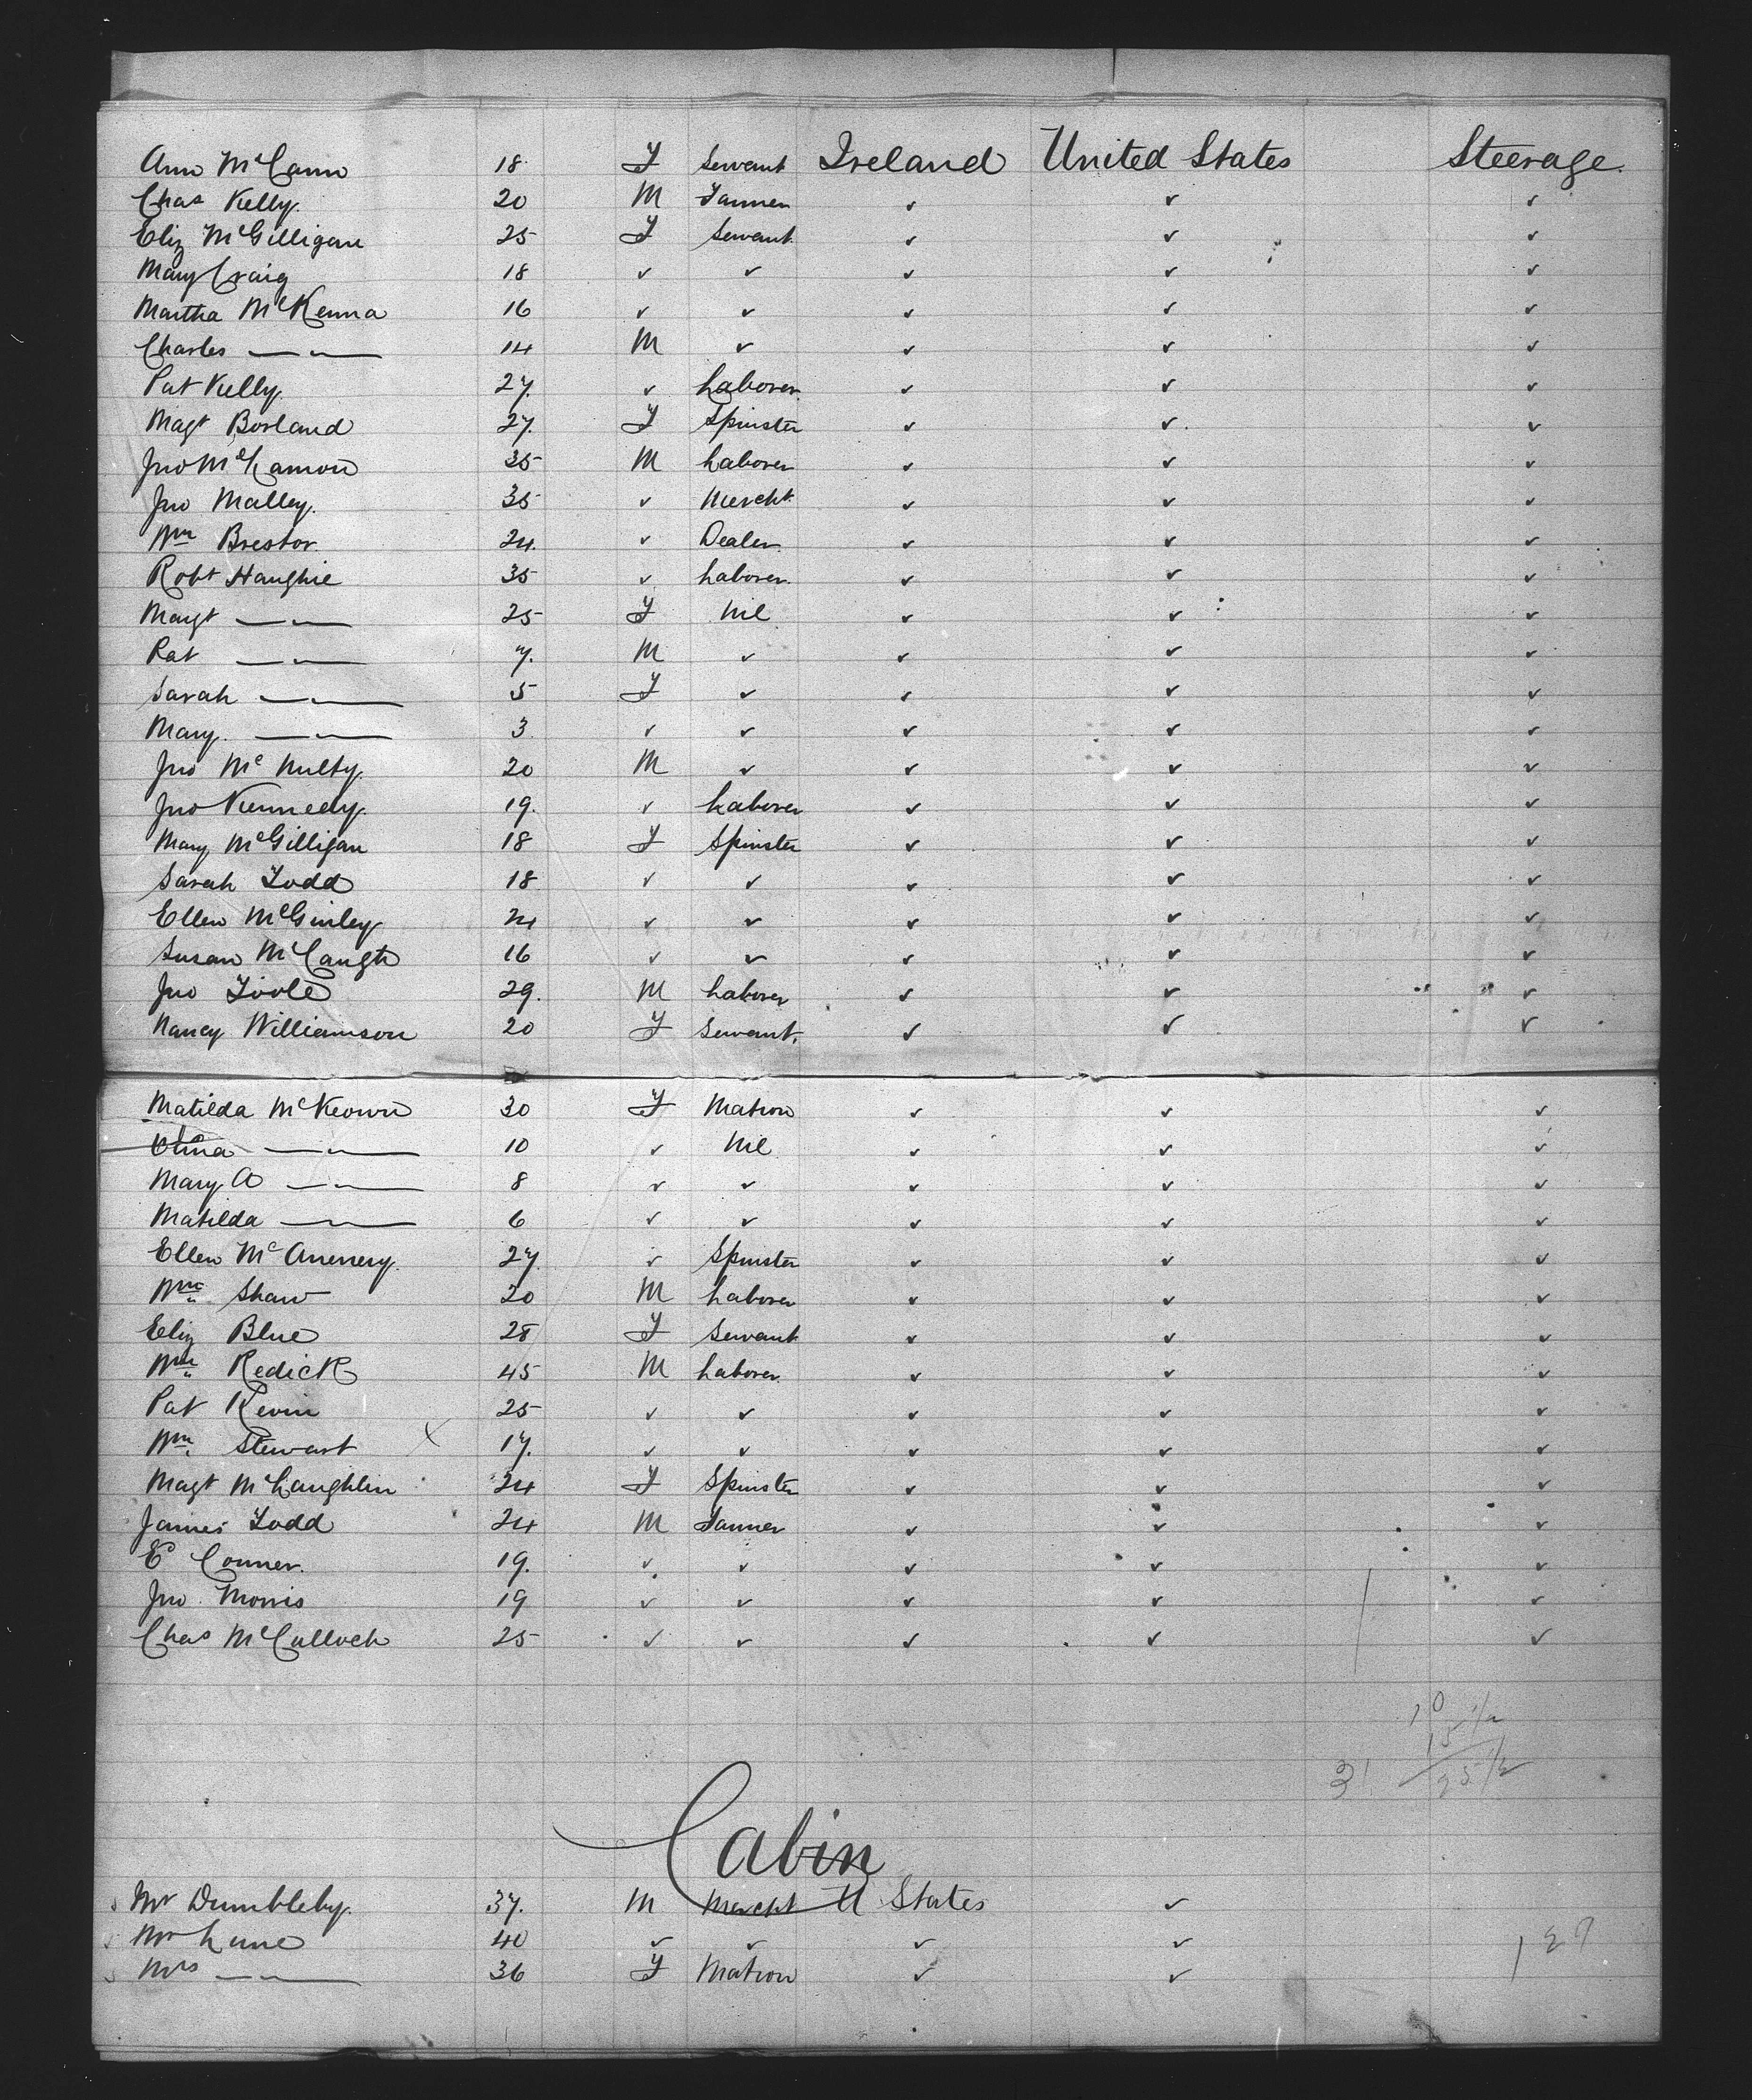 Ann McCann 18 F Servant Ireland United States Steerage
Chas Kelly 20 M Farmer ✓ ✓ ✓
Eliz McGilligan 25 F Servant ✓ ✓ ✓
Mary Craig 18 ✓ ✓ ✓ ✓ ✓
Martha McKenna 16 ✓ ✓ ✓ ✓ ✓
Charles —〃— 14 M ✓ ✓ ✓ ✓
Pat Kelly 27 ✓ Laborer ✓ ✓ ✓
Magt Borland 27 F Spinster ✓ ✓ ✓
Jno 35 M Laborer ✓ ✓ ✓
Jno Malley 35 ✓ Mercht ✓ ✓ ✓
Wm Brestor 24 ✓ Dealer ✓ ✓ ✓
Robt Haughie 35 ✓ Laborer ✓ ✓ ✓
Margt —〃— 25 F Nil ✓ ✓ ✓
Pat —〃— 7 M ✓ ✓ ✓ ✓
Sarah —〃— 5 F ✓ ✓ ✓ ✓
Mary —〃— 3 ✓ ✓ ✓ ✓ ✓
Jno McNulty 20 M ✓ ✓ ✓ ✓
Jno Kennedy 19 ✓ Laborer ✓ ✓ ✓
Mary McGilligan 18 F Spinster ✓ ✓ ✓
Sarah Todd 18 ✓ ✓ ✓ ✓ ✓
Ellen McGinley 24 ✓ ✓ ✓ ✓ ✓
Susan McCaugh 16 ✓ ✓ ✓ ✓ ✓
Jno Toole 29 M Laborer ✓ ✓ ✓
Nancy Williamson 20 F Servant ✓ ✓ ✓
Matilda McKeown 30 F Matron ✓ ✓ ✓
—〃— 10 ✓ Nil ✓ ✓ ✓
Mary A —〃— 8 ✓ ✓ ✓ ✓ ✓
Matilda —〃— 6 ✓ ✓ ✓ ✓ ✓
Ellen McAnenery 27 ✓ Spinster ✓ ✓ ✓
Wm Shaw 20 M Laborer ✓ ✓ ✓
Eliz Blue 28 F Servant ✓ ✓ ✓
Wm Redick 45 M Laborer ✓ ✓ ✓
Pat Kevin 25 ✓ ✓ ✓ ✓ ✓
Wm Stewart X 17 ✓ ✓ ✓ ✓ ✓
Magt McLaughlin 24 F Spinster ✓ ✓ ✓
James Todd 24 M Farmer ✓ ✓ ✓
E Conner 19 ✓ ✓ ✓ ✓ ✓
Jno Morris 19 ✓ ✓ ✓ ✓ ✓
Chas McCulloch 25 ✓ ✓ ✓ ✓ ✓
10
15 1/2
31 25 1/2
Cabin
Mr Dumbleby 37 M Mercht U States ✓
Mr Lune 40 ✓ ✓ ✓ ✓
Mrs —〃— 36 F Matron ✓ ✓